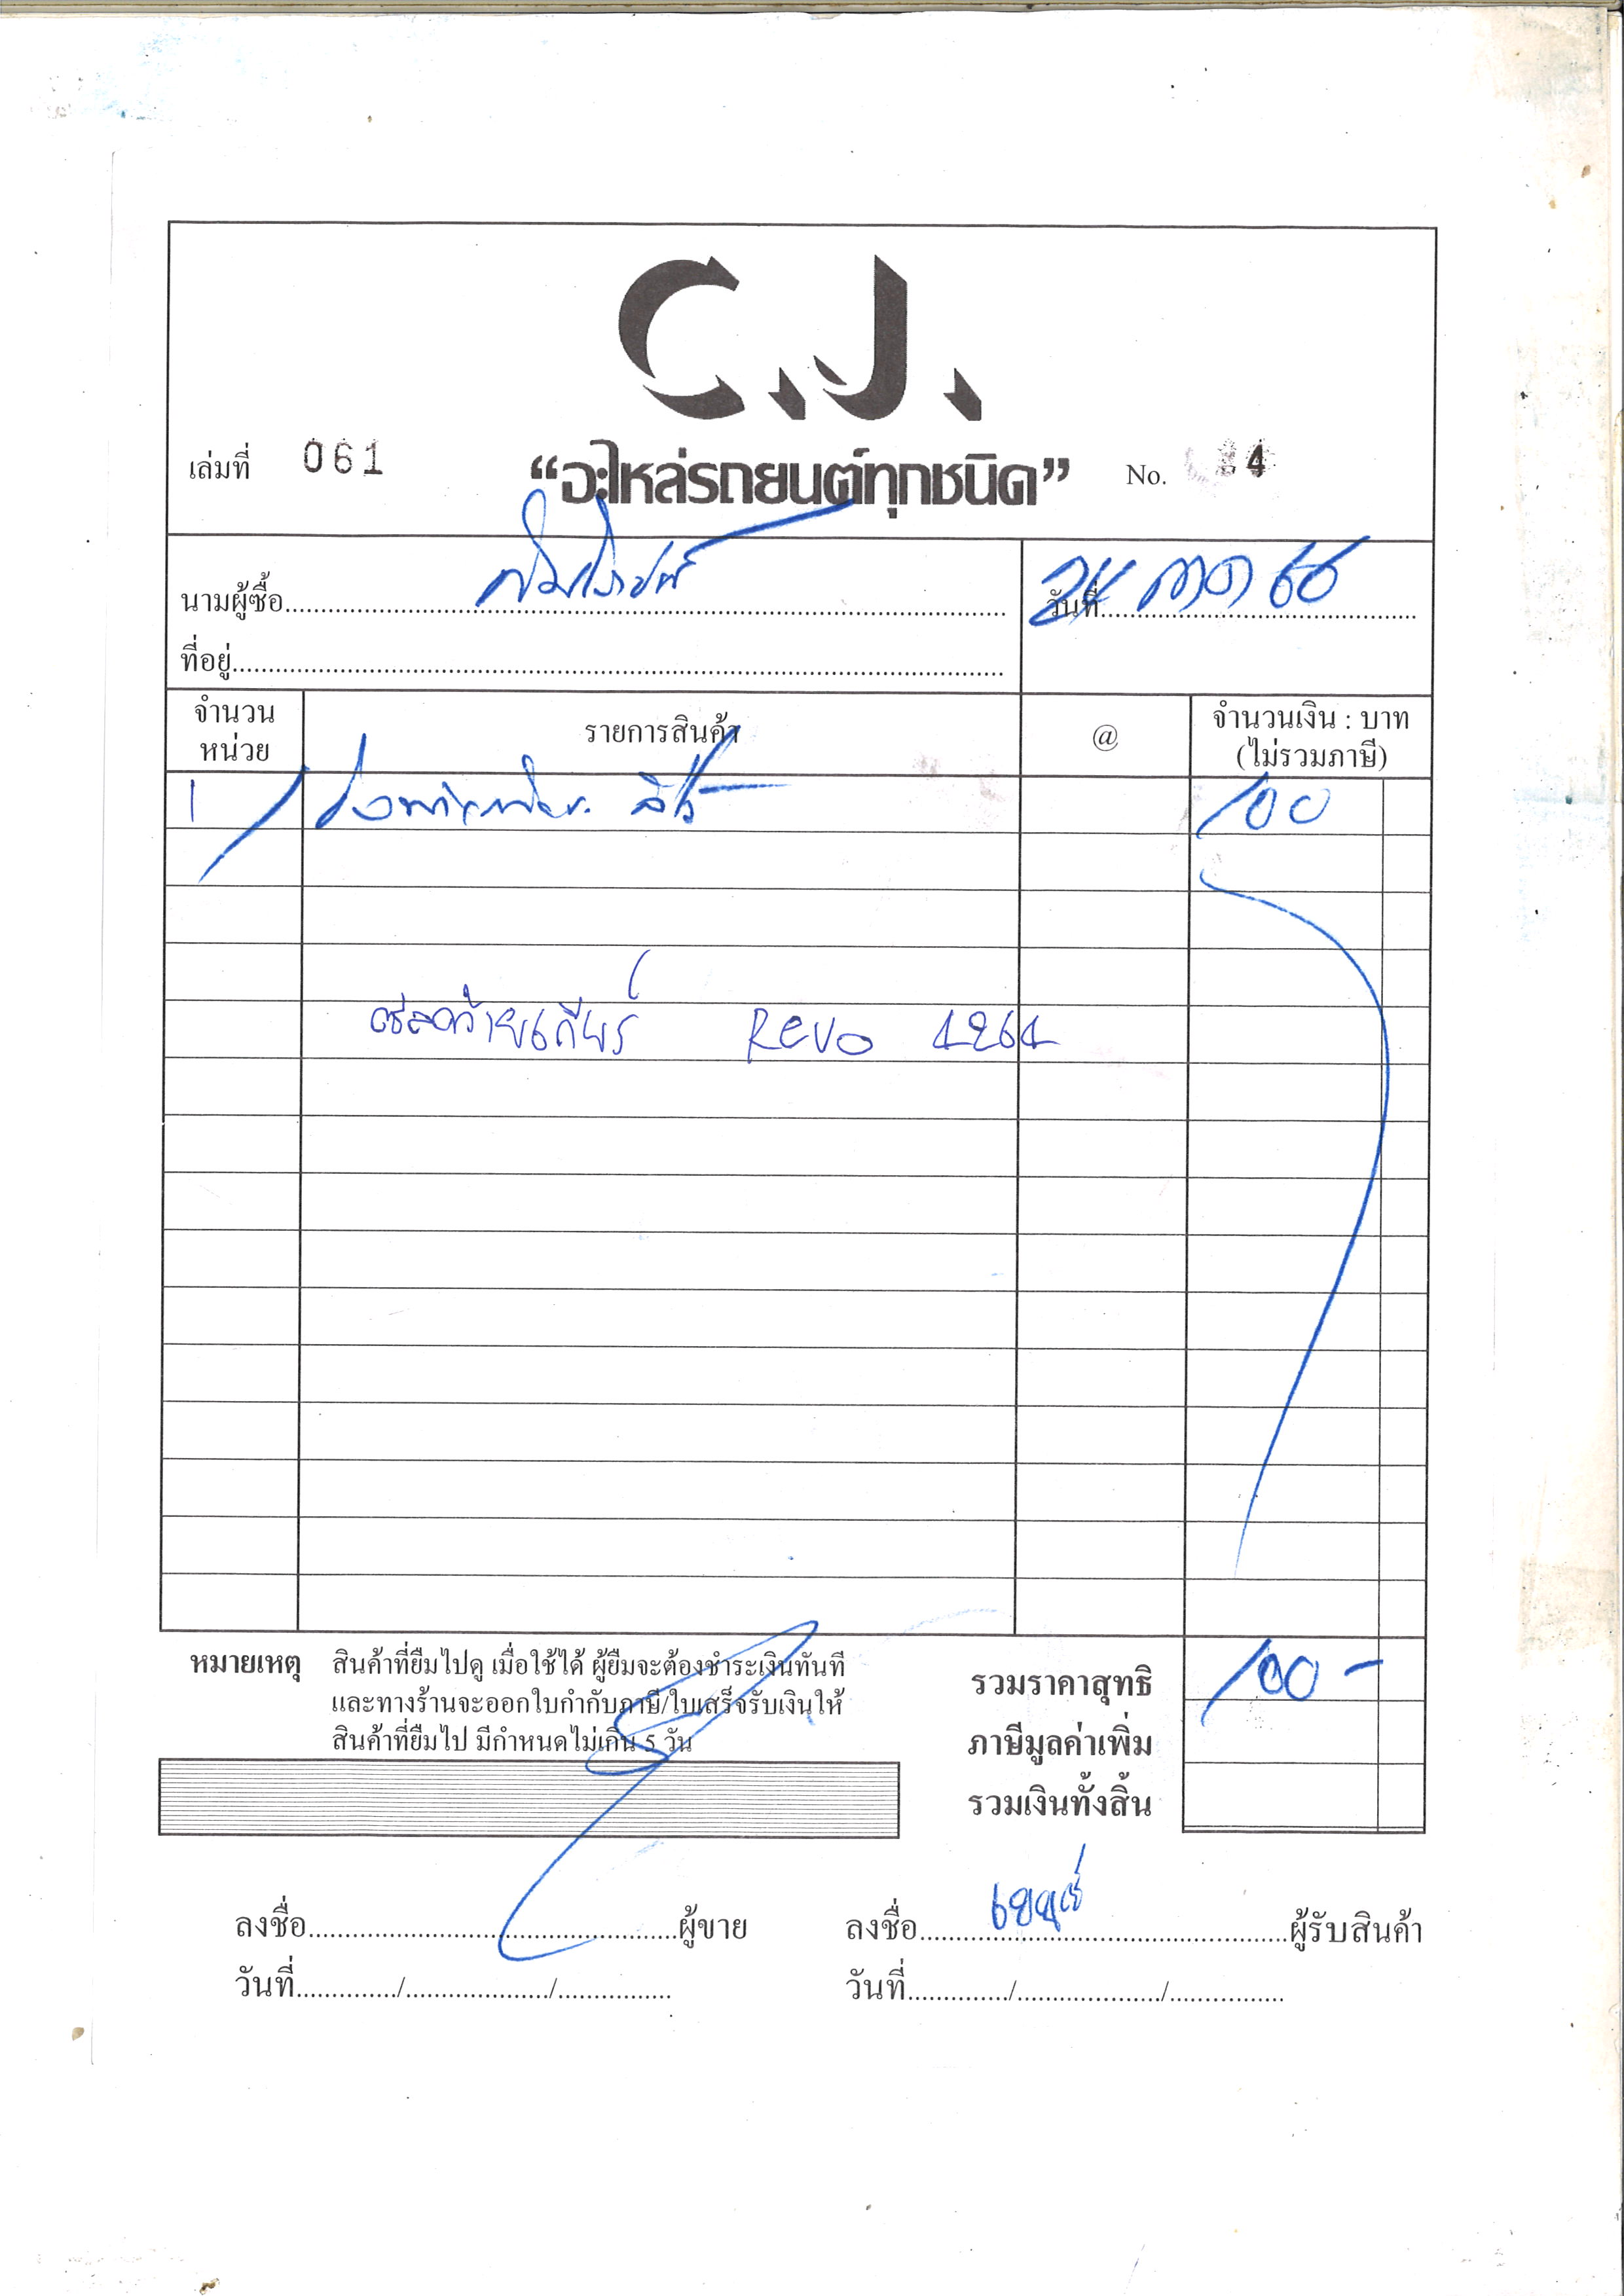 C.J.
เล่มที่ 061 “อะไหล่รถยนต์ทุกชนิด” No. 4
นามผู้ซื้อ
วันที่ 24 66
ที่อยู่
จำนวน
หน่วย
รายการสินค้า
@
จำนวนเงิน : บาท
(ไม่รวมภาษี)
1 100
Revo 4264
หมายเหตุ สินค้าที่ยืมไปดู เมื่อใช้ได้ ผู้ยืมจะต้องชำระเงินทันที
และทางร้านจะออกใบกำกับภาษี/ใบเสร็จรับเงินให้
สินค้าที่ยืมไป มีกำหนดไม่เกิน 5 วัน
รวมราคาสุทธิ 100 -
ภาษีมูลค่าเพิ่ม
รวมเงินทั้งสิ้น
ลงชื่อ ผู้ขาย ลงชื่อ ผู้รับสินค้า
วันที่ / / วันที่ / /